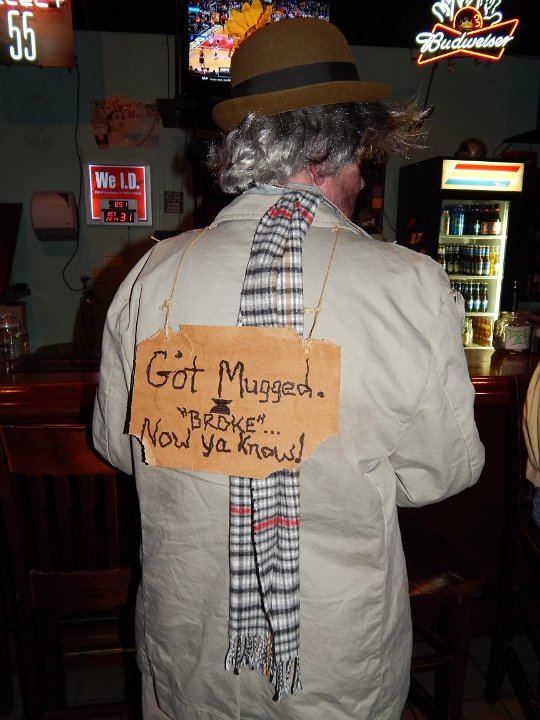 55
Budweiser
We I.D.
31
Got Mugged.
I
"BROKE"...
Now ya Know!